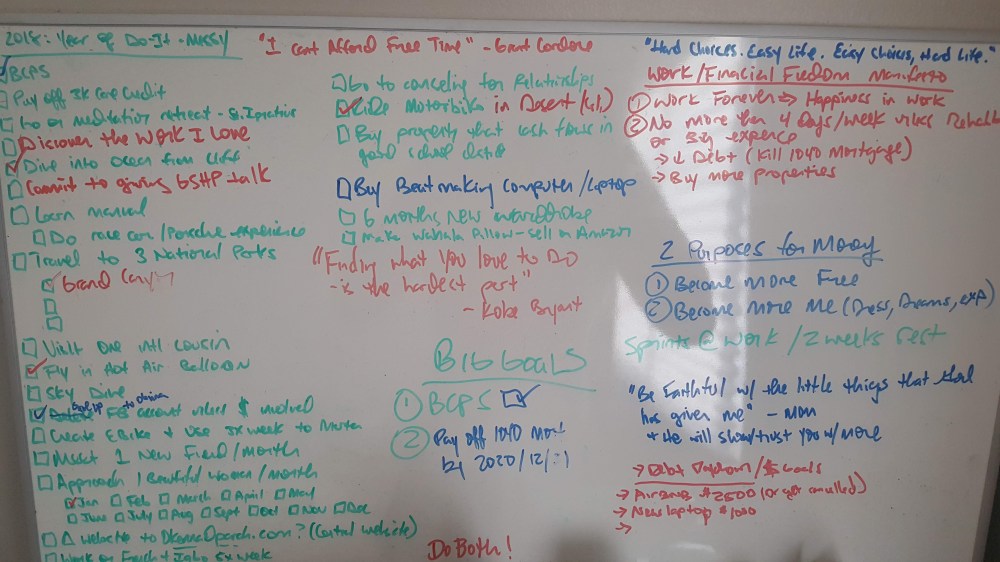 2018: Year of Do-It - Messy
"I Cant Afford Free Time" - Grant Cardone
"Hard Choices. Easy Life. Easy Choices, Hard Life."
BCPS
Pay off 3k Care Credit
Go on meditation retreat - S. Ignatius
Discover the Work I Love
Dive into Ocean from Cliff
Commit to giving GSHP talk
Learn manual
Do race car/Porsche experience
Travel to 3 National Parks
Grand Cany
Visit One intl cousin
Fly in Hot Air Balloon
Sky Dive
FB account unless $ involved
Create EBike + Use 3x week to
1 New Friend/month
Approach 1 Beautiful Women/month
Jan Feb March April May
June July Aug Sept Oct Nov Dec
Δ website to .com? (Central website)
Work on + 5x week
Go to counceling for Relatinships
Ride Motorbike in Desert
Buy property that cash flows in
good school
Buy Beatmaking Computer/laptop
6 months new
Make Pillow-sell on Amazon
"Finding what you love to Do
-is the hardest part"
- Kobe Bryant
BIG GOALS
① BCPS
② Pay off 1040 Mort
by 2020/12/
Do Both!
Work/Finacial Fredom Manifesto
① Work Forever => Happiness in Work
② No more than 4 Days/week unless
or expence
→ ↓ Debt (Kill 1040 Mortgage)
→ Buy more properties
2 Purposes for Mony
① Become More Free
② Become More Me (Dress, Dreams, exp)
Sprints @ Work / 2 weeks rest
"Be Faithful w/ the little things that God
has given me" - Mom
* He will show/trust you w/ more
→ Debt /$ Goals
→ AirBNB $2500 (or get cancelled)
→ New laptop $1000
→